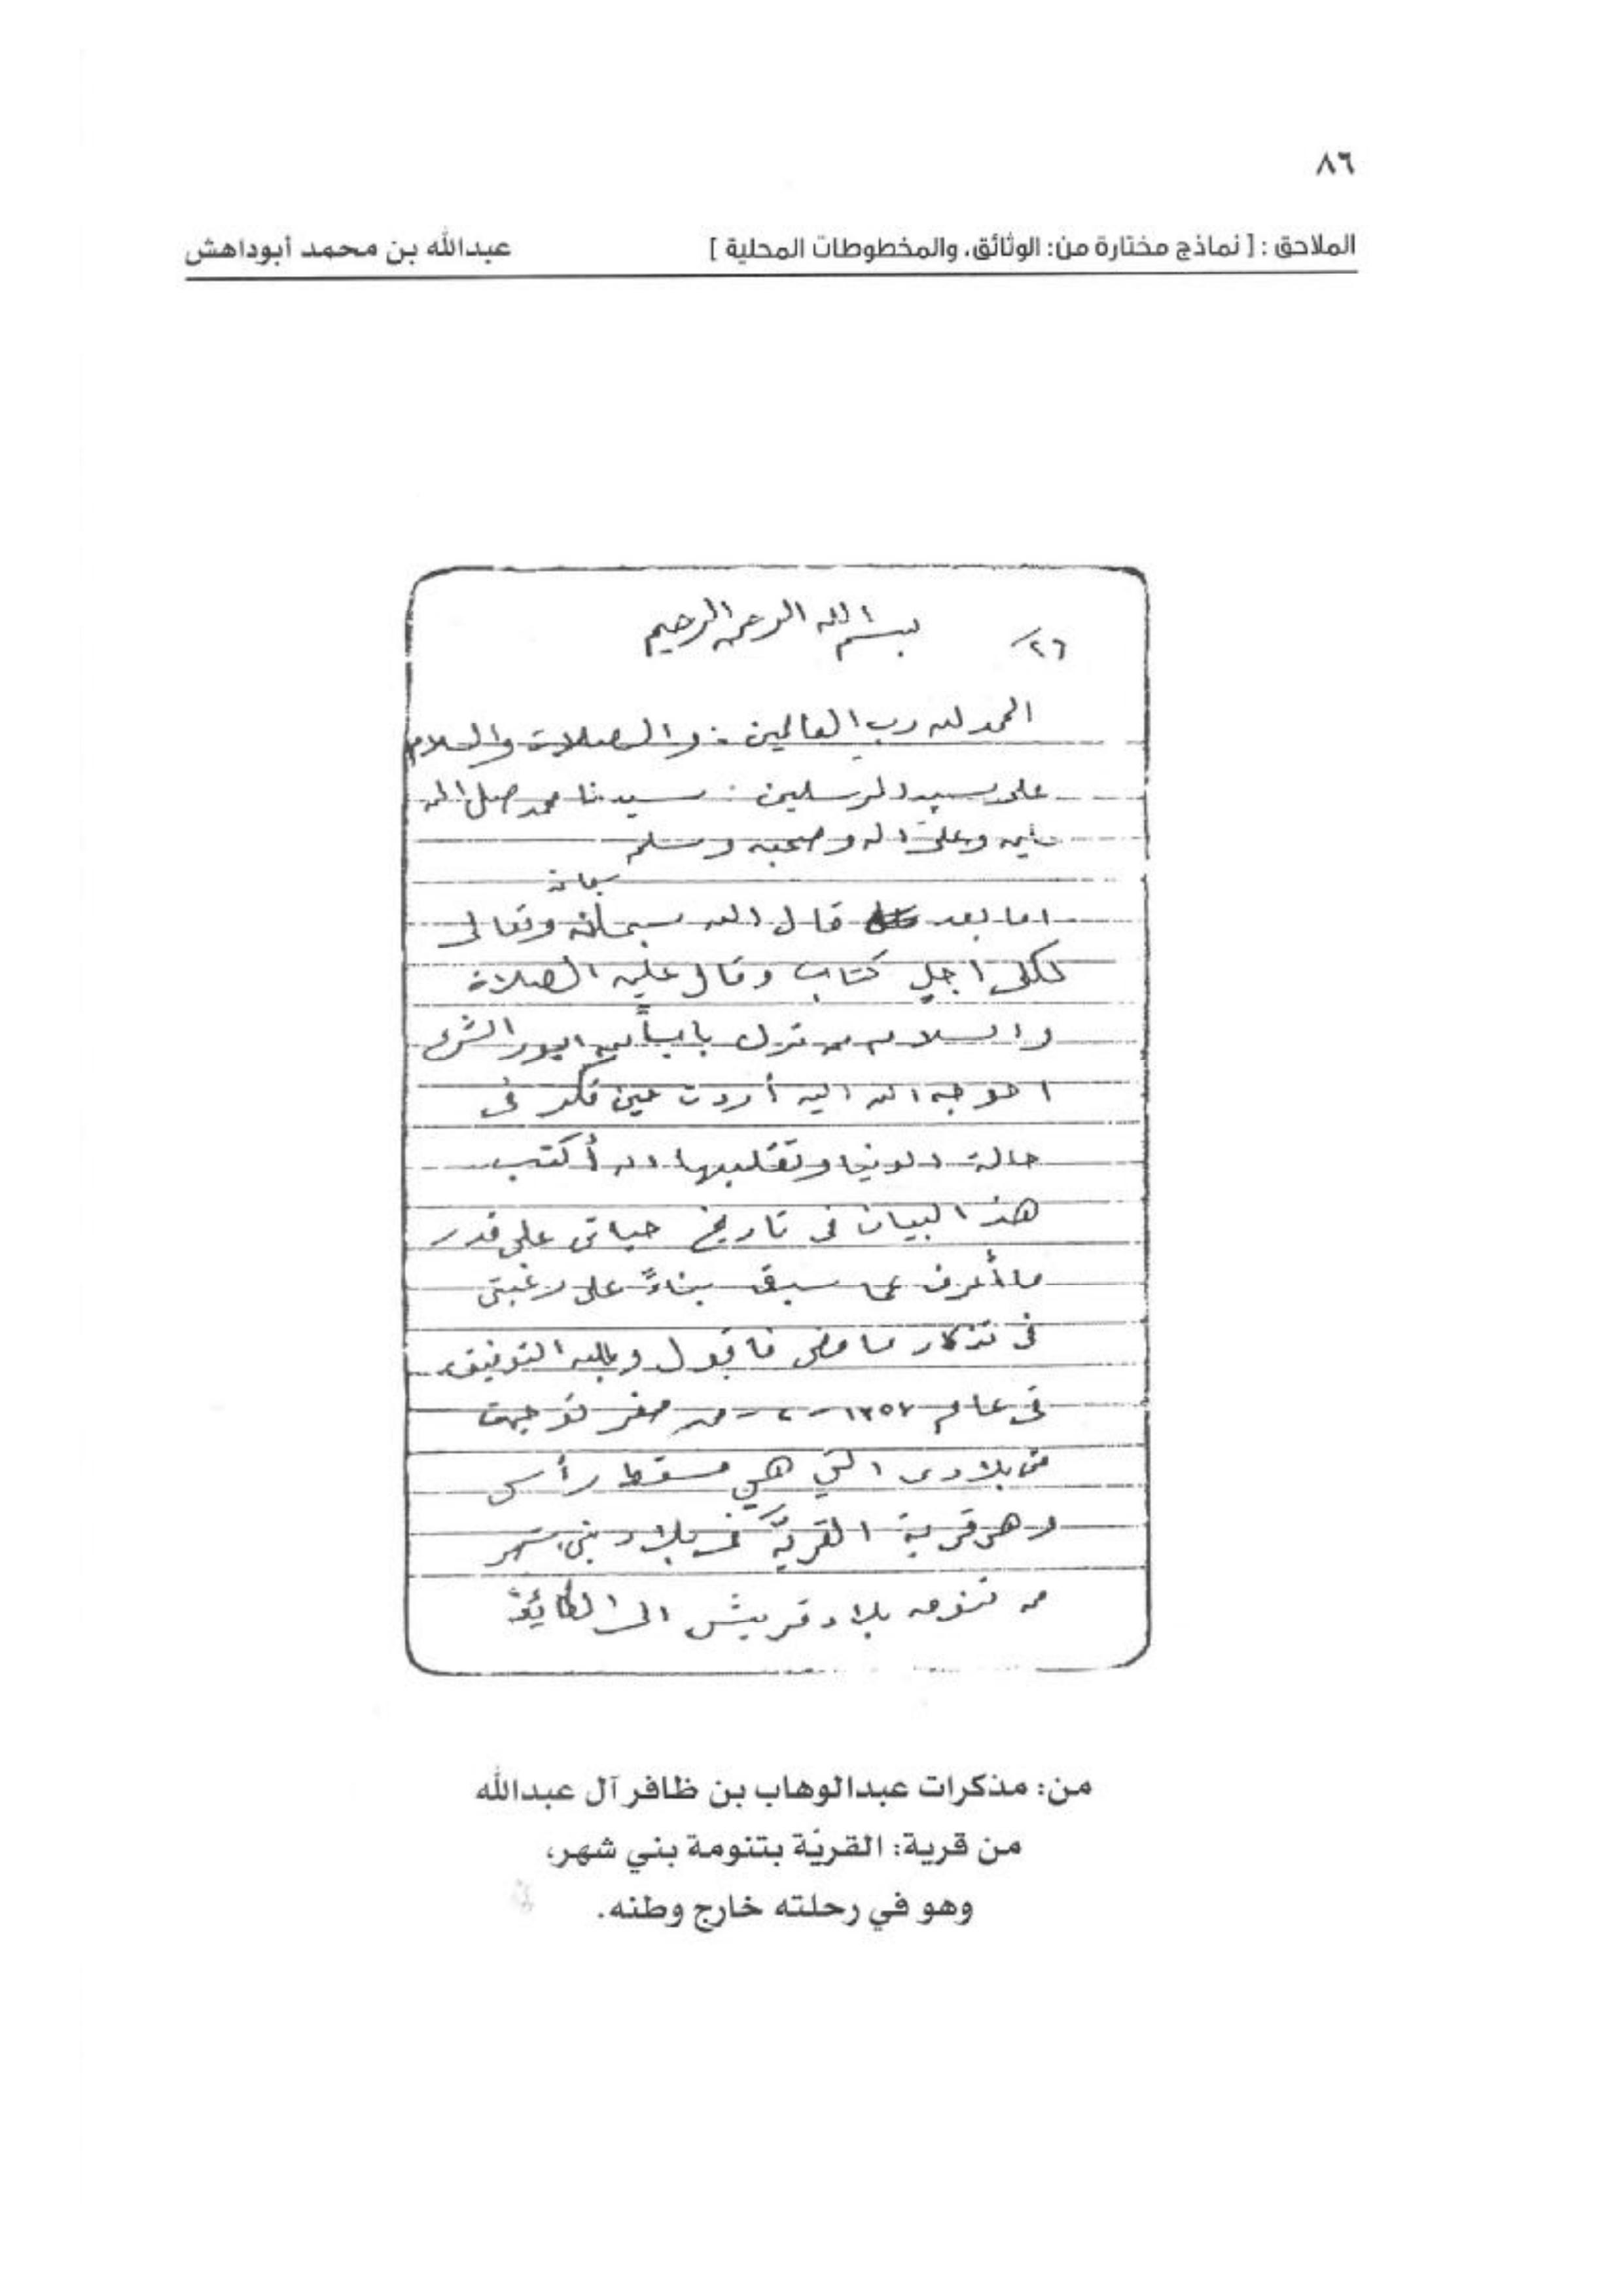 ٨٦
الملاحق : [ نماذج مختارة من: الوثائق، والمخطوطات المحلية ] عبدالله بن محمد أبوداهش
٢٦ بسم الله الرحمن الرحيم
الحمد لله رب العالمين : والصلات والسلام
على سيد المرسلين : سيدنا محمد صل الله
عليه وعلى اله وصحبه وسلم
سبحانه
اما بعد قال الله سبحانه وتعالى
لكل اجل كتاب وقال عليه الصلاة
والسلام من نزل
احوجه الله اليه أردت حين فكر في
حالة الدنيا وتقلبها ان أكتب
هذ البيان في تاريخ حياتي على قدر
ما أعرف عما سبق بناءً على رغبتي
في تذكار ما مضى فاقول وبالله التوفيق
في عام ١٣٥٧ - ٢ - من صفر توجهت
من بلادى التي هي مسقط رأسي
وهي قرية القريَّة في بلاد بني شهر
من تنومه بلاد قريش الى الطائف
من: مذكرات عبدالوهاب بن ظافر آل عبدالله
من قرية: القريّة بتنومة بني شهر،
وهو في رحلته خارج وطنه.